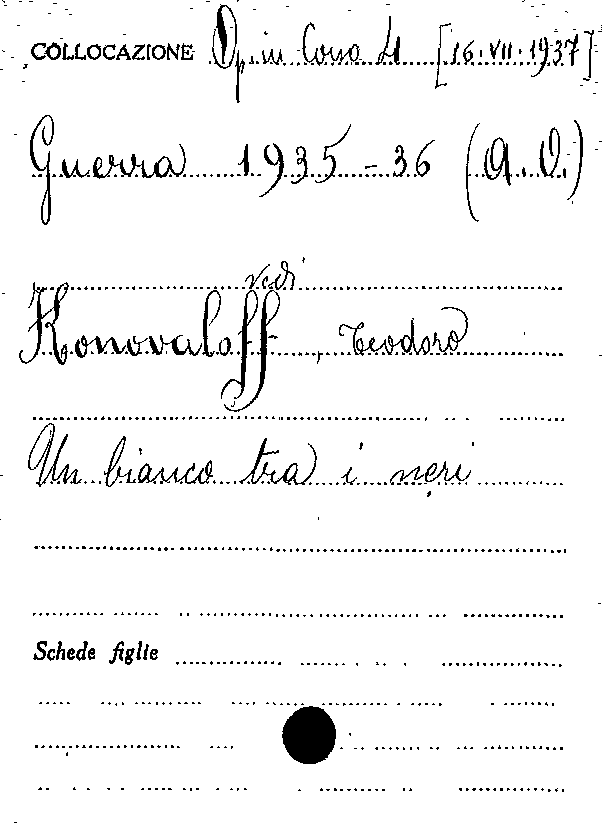 COLLOCAZIONE Op. in Corso 41 [16.VII.1937]
Guerra 1935-36 (A.O.)
vedi
Konovaloff, Teodoro
Un bianco tra i neri
Schede figlie